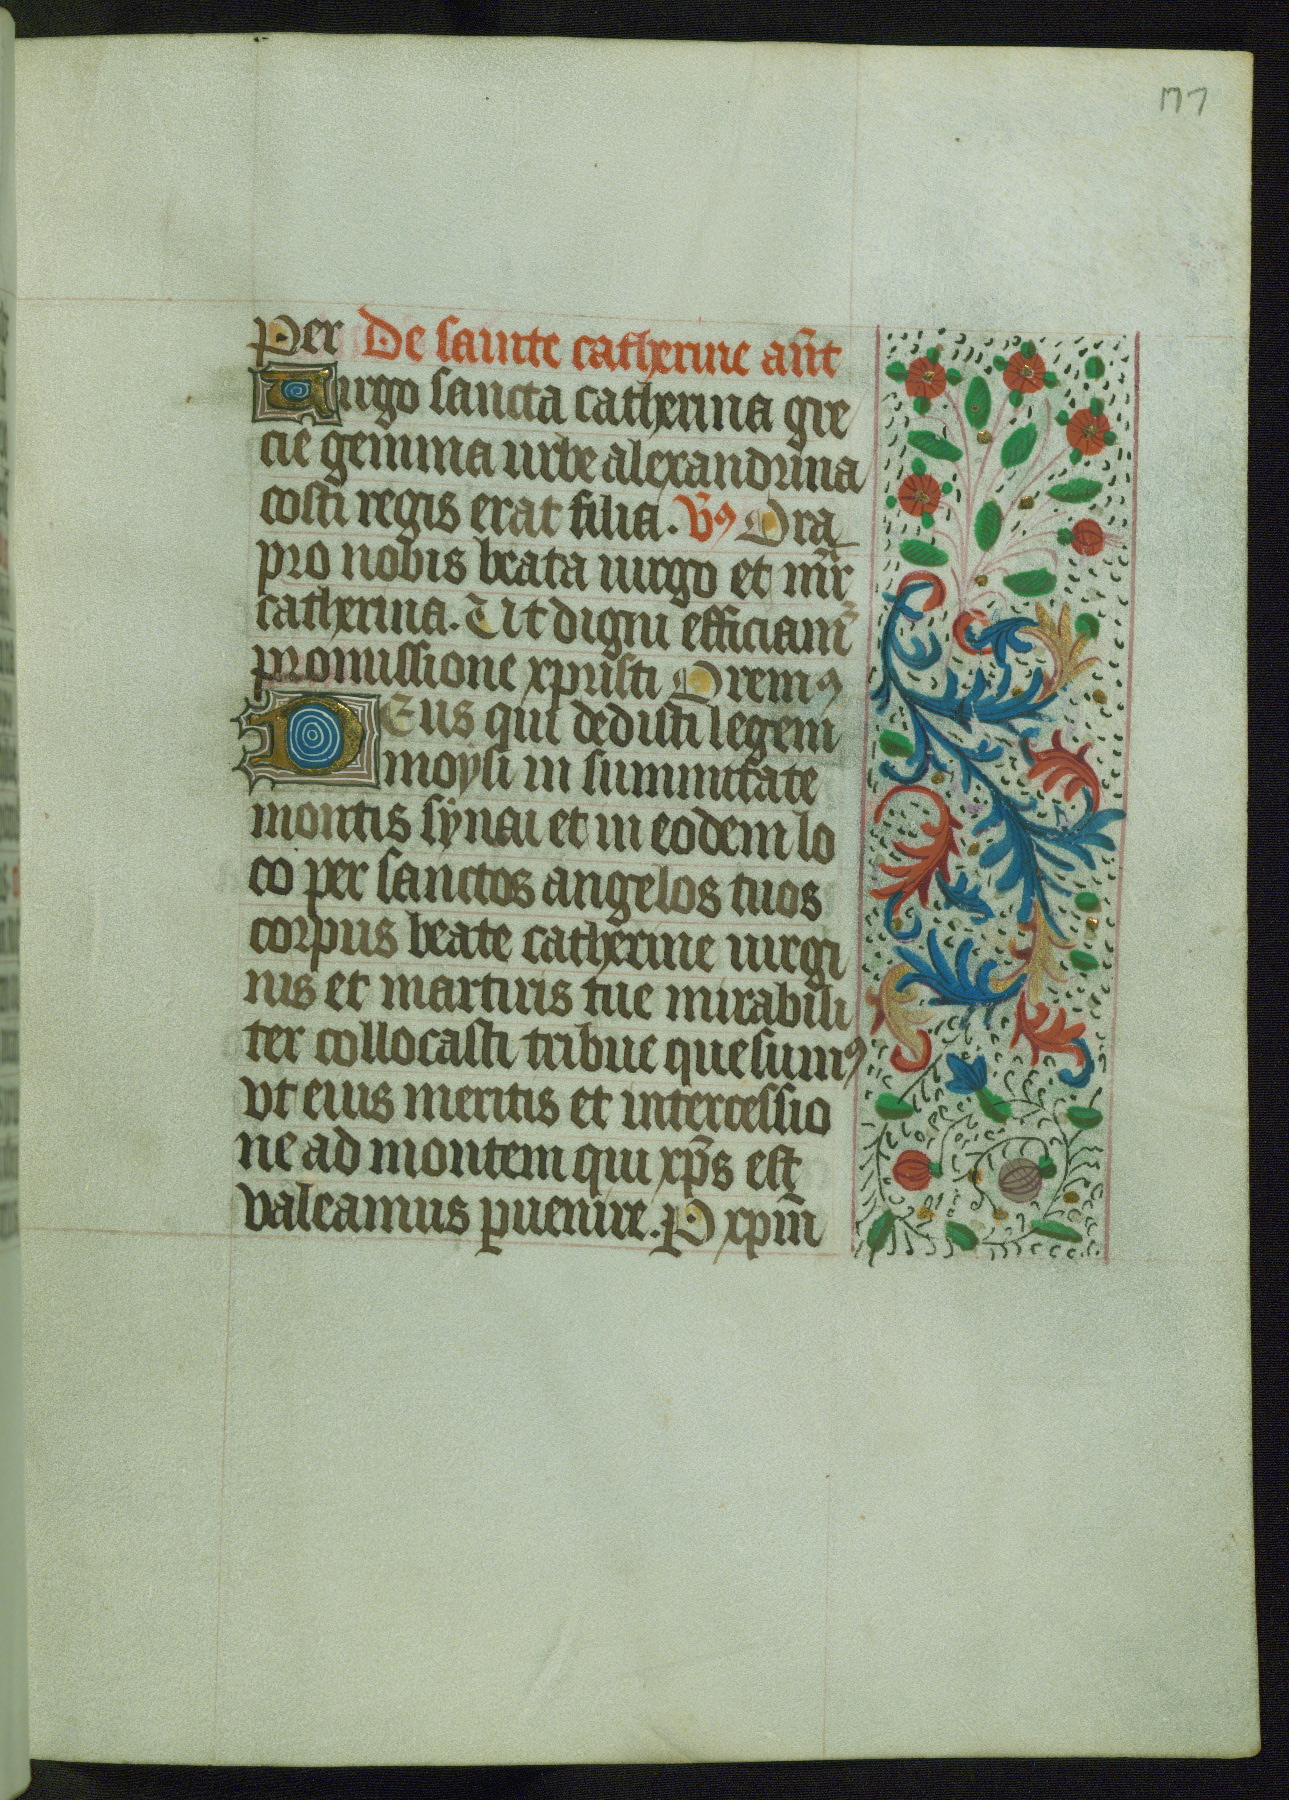 177
Per De sainte catherine añt
Virgo sancta catherina gre
cie gemma urbe alexandrina
costi regis erat filia. V̄9 Ora
pro nobis beata uirgo et mr̄
catherina. Ut digni efficiam̄
promissione xpristi Orem9
DEus qui dedisti legem
moysi in summitate
montis synai et in eodem lo
co per sanctos angelos tuos
corpus beate catherine uirgi
nis et martiris tue mirabili
ter collocasti tribue quesum9
vt eius meritis et intercessio
ne ad montem qui xp̄s est
valeamus ꝑuenire. P xpm̄